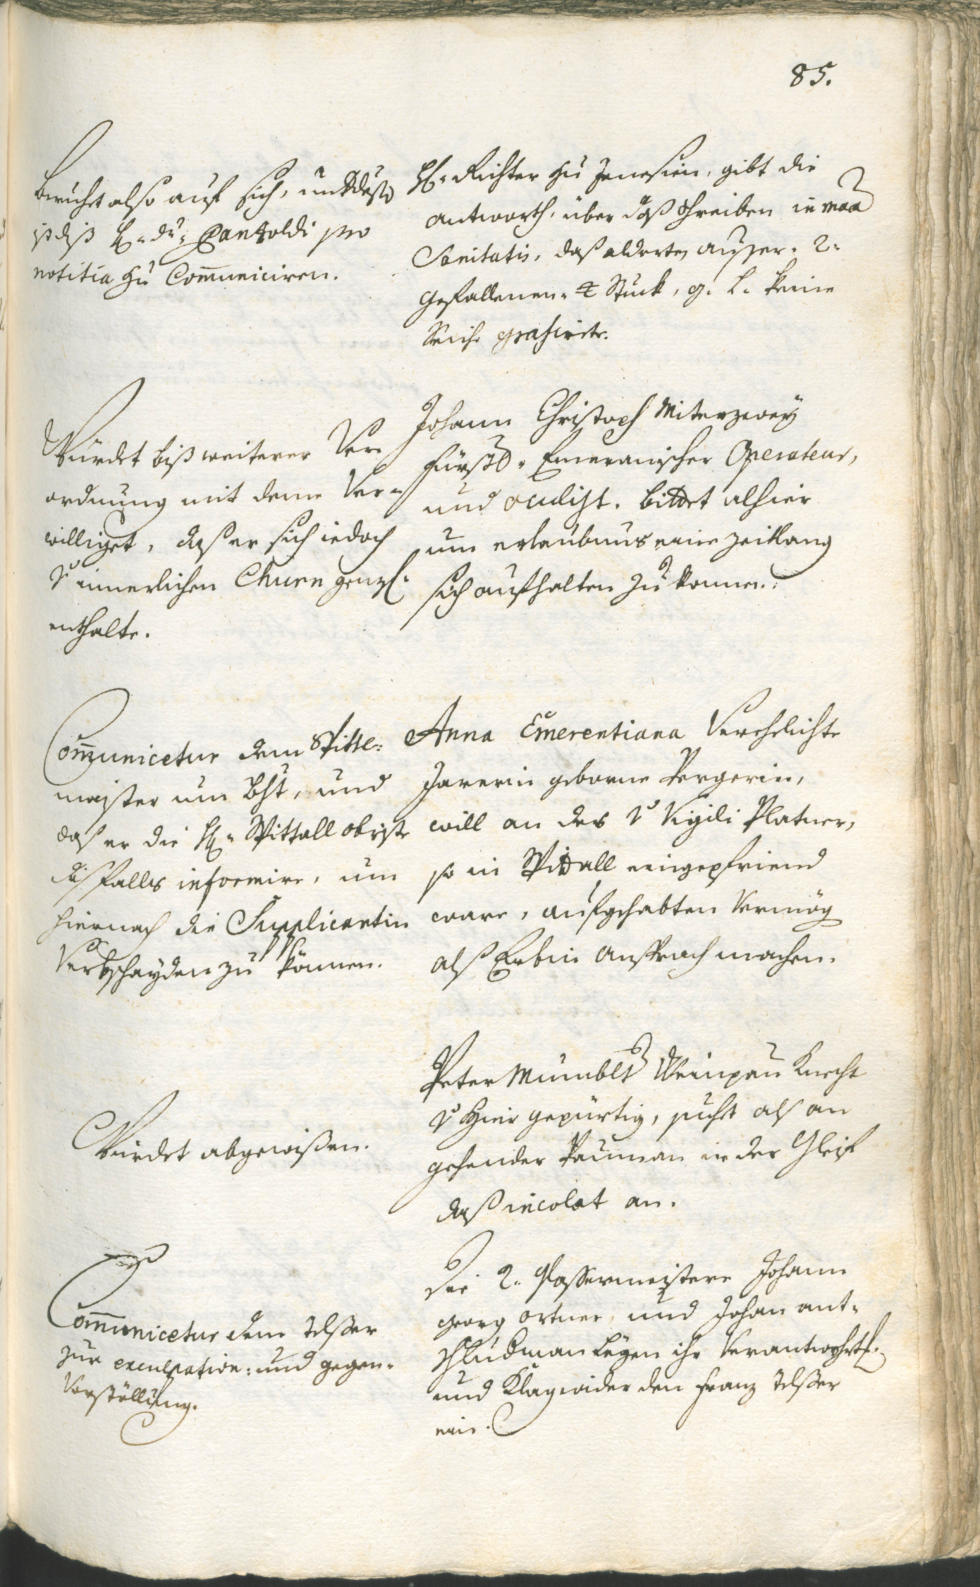 85.
Beruhet also auf sich, und dises
ist diß H: dr: Pantzoldi pro
notitia zu Com̅uniciren.
H: Richter zu Jenesien, gibt die
antworth, über daß schreiben in ma͞a
Sanitatis, daß alderten ausser 2
gefallenen 4 Stuck, g: L: keine
Seiche grahsirte.
Würdet biß weiterer Ver
ordnung mit deme Ver
williget, daß er sich iedoch
v innerlichen Churn genzl:
enthalte.
Johann Christoph Miterzwey
Fürstl: Emeranischer Operateur,
und oculist. bittet alhier
um erlaubnus eine zeitlang
sich aufhalten zu können.
Com̅unicetur dem Spittl=
maister um Bht, und
daß er die H: Spittall obriste
dißfalls informire, um
hiernach die Supplicantin
Verbschayden zu können.
Anna Emerentiana Verehelichte
Jaxerin geborne Pergerin,
will an des v Vigili Platner,
so in Spittall eingepfriend
ware, aufgehabten Vermög
alß Erbin Anspruch machen.
Würdet abgewißen.
Peter Mumblt Weinpau Knecht
v hier gepürtig, sucht alß an
gehender Pauman in der Gleif
daß incolat an.
Com̅unicetur dem Telsser
zur exculpation: und gegen=
Vorstöllung.
Die 2. Wassermeistere Johann
georg ortner, und Johan ant=
Schludman legen ihr Verantworttl:
und Klag wider den Franz Telsser
ein.